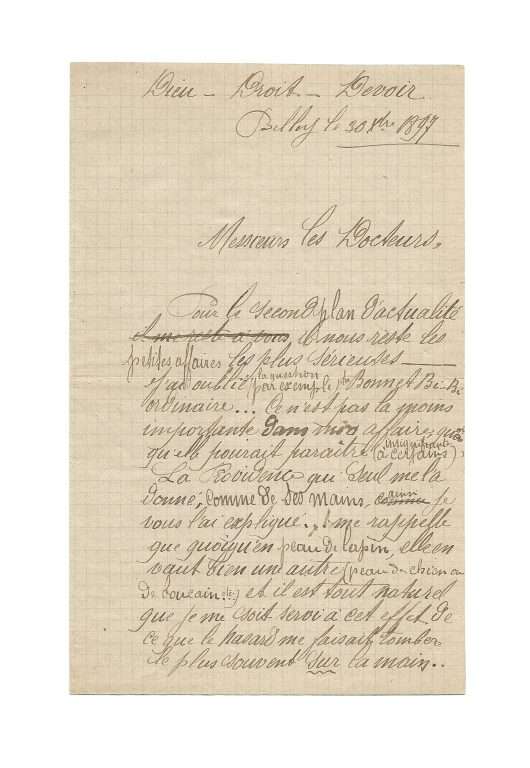 Dieu - Droit - Devoir
Billy le 30 Xbre 1897
Messieurs les Docteurs,
Pour le second plan d'actualité
il me reste à vous il nous reste les
petites affaires les plus sérieuses
J'ai oublié la question par exemple, Bonnet Bi-Bi-
ordinaire... Ce n'est pas la moins
importante dans mon affaire;
qu'elle pourait paraître insignifiante (à certains).
La Providence qui seul me l'a
donné, comme de ses mains, comme ainsi je
vous l'ai expliqué..., me rappelle
que quoiqu'en peau de lapin, elle en
vaut bien une autre (peau de chien ou
de ) et il est tout naturel
que je me soit servi à cet effet de
ce que le hasard me faisait tomber
le plus souvent sur la main..